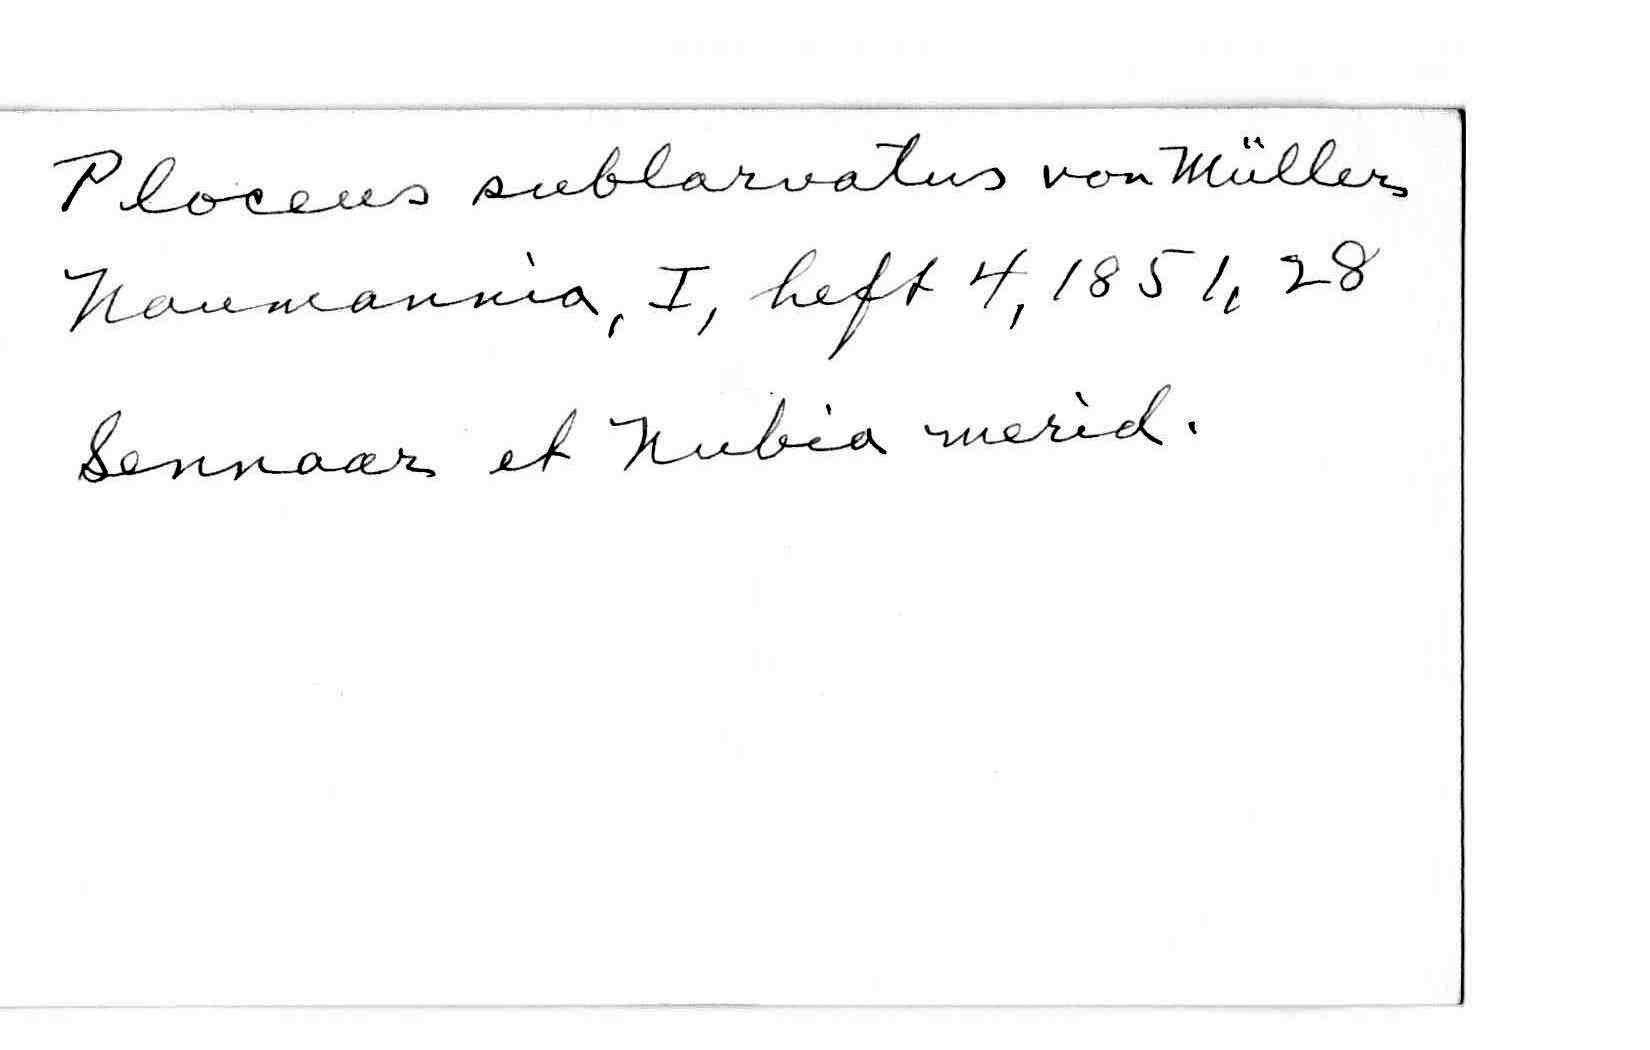 Ploceus sublarvatus von Müller
Naumannia, I, heft 4, 1851, 28
Sennaar et Nubia merid.